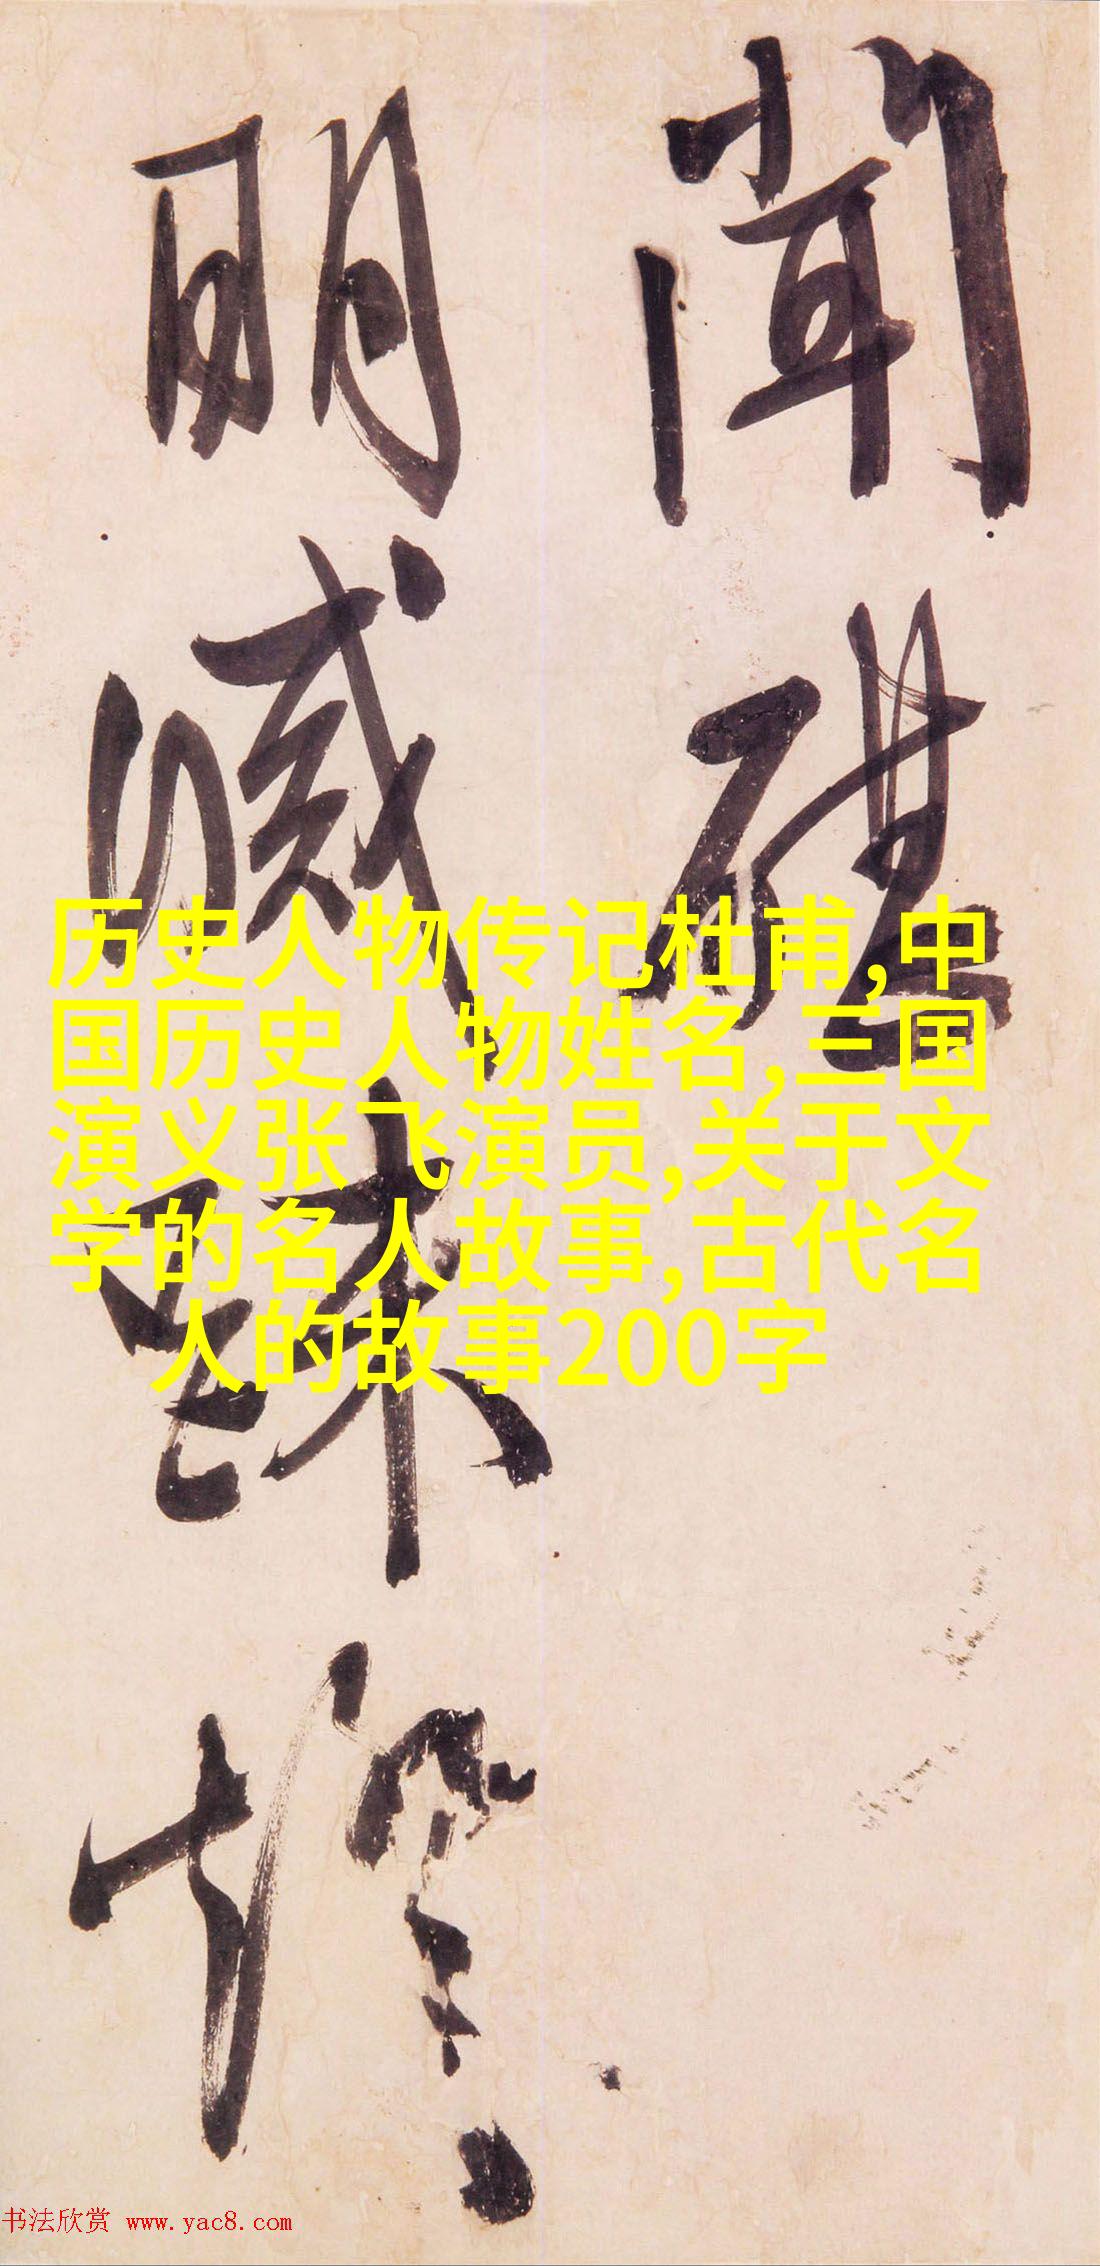 聞碪
明滅
历史人物传记杜甫,中
国历史人物姓名,三国
演义张飞演员,关于文
学的名人故事,古代名
人的故事200字
书法欣赏 www.yac8.com